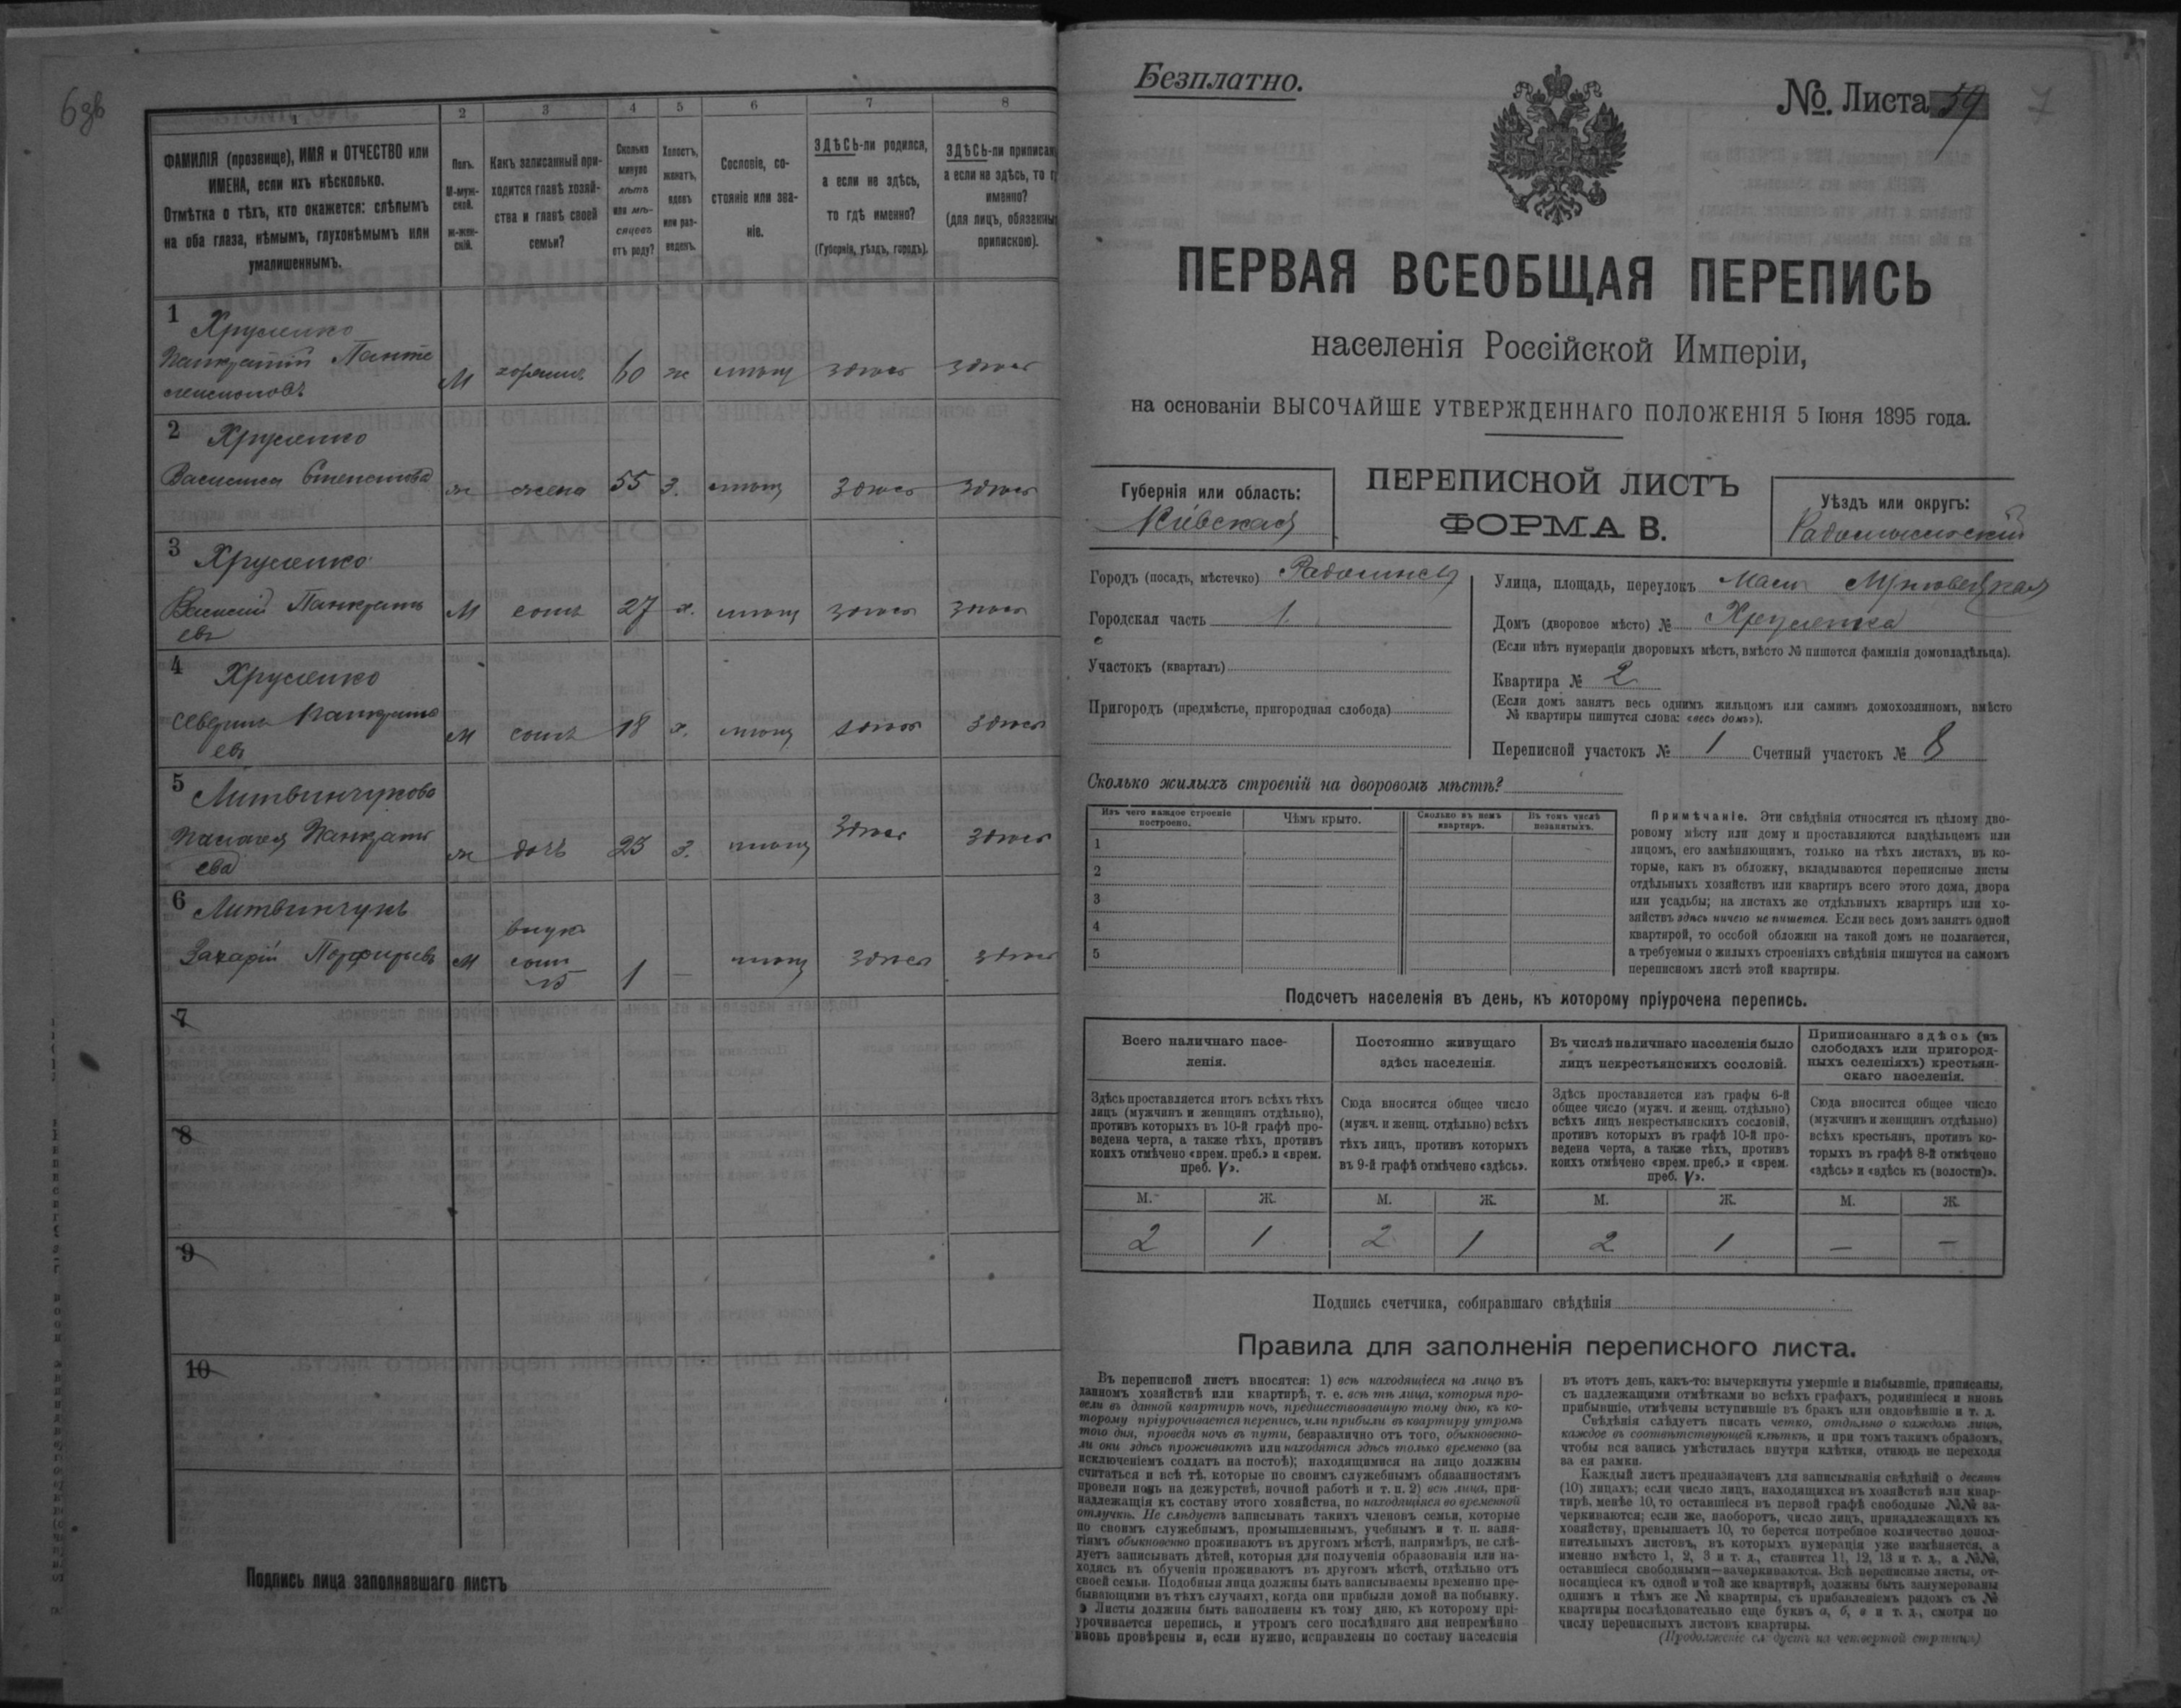 6 зв
1 2 3 4 5 6 7 8
ФАМИЛІЯ (прозвище), ИМЯ и ОТЧЕСТВО или
ИМЕНА, если ихъ нѣсколько.
Отмѣтка о тѣхъ, кто окажется: слѣпымъ
на оба глаза, нѣмымъ, глухонѣмымъ или
умалишеннымъ.
Полъ.
М-муж-
ской.
ж-жен-
скій.
Какъ записанный при-
ходится главѣ хозяй-
ства и главѣ своей
семьи?
Сколько
минуло
лѣтъ
или мѣ-
сяцевъ
отъ роду?
Холостъ,
женатъ,
вдовъ
или раз-
веденъ.
Сословіе, со-
стояніе или зва-
ніе.
ЗДѢСЬ-ли родился,
а если не здѣсь,
то гдѣ именно?
(Губернія, уѣздъ, городъ).
ЗДѢСЬ-ли приписан
а если не здѣсь, то г
именно?
(для лицъ, обязанны
припискою).
1 Хруленко
Панкратій Панте
леимоновъ М хозяинъ 60 ж мѣщ здѣсь здѣсь
2 Хруленко
Василиса Степанова ж жена 55 з. мѣщ здѣсь здѣсь
3 Хруленко
Василій Панкрать
евъ М сынъ 27 х. мѣщ здѣсь здѣсь
4 Хруленко
Северинъ Панкрать
евъ М сынъ 18 х. мѣщ здѣсь здѣсь
5 Литвинчукова
Панкрать
ева ж дочь 23 з. мѣщ здѣсь здѣсь
6 Литвинчукъ
Захарій Порфирьевъ М внукъ
сынъ
№5 1 — мѣщ здѣсь здѣсь
7
8
9
10
Подпись лица заполнявшаго листъ
Безплатно.
№. Листа 59
7
ПЕРВАЯ ВСЕОБЩАЯ ПЕРЕПИСЬ
населенія Россійской Имперіи,
на основаніи ВЫСОЧАЙШЕ УТВЕРЖДЕННАГО ПОЛОЖЕНІЯ 5 Іюня 1895 года.
Губернія или область:
Кіевская
ПЕРЕПИСНОЙ ЛИСТЪ
ФОРМА В.
Уѣздъ или округъ:
Радомысльскій
Городъ (посадъ, мѣстечко) Радомысль
Городская часть 1
Участокъ (кварталъ)
Пригородъ (предмѣстье, пригородная слобода)
Улица, площадь, переулокъ Мало
Домъ (дворовое мѣсто) № Хруленка
(Если нѣтъ нумераціи дворовыхъ мѣстъ, вмѣсто № пишется фамилія домовладѣльца).
Квартира № 2
(Если домъ занятъ весь однимъ жильцомъ или самимъ домохозяиномъ, вмѣсто
№ квартиры пишутся слова: «весь домъ»).
Переписной участокъ № 1 Счетный участокъ № 8
Сколько жилыхъ строеній на дворовомъ мѣстѣ?
Изъ чего каждое строеніе
построено.
Чѣмъ крыто.
Сколько въ немъ
квартиръ.
Въ томъ числѣ
незанятыхъ.
1
2
3
4
5
Примѣчаніе. Эти свѣдѣнія относятся къ цѣлому дво-
ровому мѣсту или дому и проставляются владѣльцемъ или
лицомъ, его замѣняющимъ, только на тѣхъ листахъ, въ ко-
торые, какъ въ обложку, вкладываются переписные листы
отдѣльныхъ хозяйствъ или квартиръ всего этого дома, двора
или усадьбы; на листахъ же отдѣльныхъ квартиръ или хо-
зяйствъ здѣсь ничего не пишется. Если весь домъ занятъ одной
квартирой, то особой обложки на такой домъ не полагается,
а требуемыя о жилыхъ строеніяхъ свѣдѣнія пишутся на самомъ
переписномъ листѣ этой квартиры.
Подсчетъ населенія въ день, къ которому пріурочена перепись.
Всего наличнаго насе-
ленія.
Постоянно живущаго
здѣсь населенія.
Въ числѣ наличнаго населенія было
лицъ некрестьянскихъ сословій.
Приписаннаго здѣсь (въ
слободахъ или пригород-
ныхъ селеніяхъ) крестьян-
скаго населенія.
Здѣсь проставляется итогъ всѣхъ тѣхъ
лицъ (мужчинъ и женщинъ отдѣльно),
противъ которыхъ въ 10-й графѣ про-
ведена черта, а также тѣхъ, противъ
коихъ отмѣчено «врем. преб.» и «врем.
преб. V».
Сюда вносится общее число
(мужч. и женщ. отдѣльно) всѣхъ
тѣхъ лицъ, противъ которыхъ
въ 9-й графѣ отмѣчено «здѣсь».
Здѣсь проставляется изъ графы 6-й
общее число (мужч. и женщ. отдѣльно)
всѣхъ лицъ некрестьянскихъ сословій,
противъ которыхъ въ графѣ 10-й про-
ведена черта, а также тѣхъ, противъ
коихъ отмѣчено «врем. преб.» и «врем.
преб. V».
Сюда вносится общее число
(мужчинъ и женщинъ отдѣльно)
всѣхъ крестьянъ, противъ ко-
торыхъ въ графѣ 8-й отмѣчено
«здѣсь» и «здѣсь къ (волости)».
М. Ж. М. Ж. М. Ж. М. Ж.
2 1 2 1 2 1 — —
Подпись счетчика, собиравшаго свѣдѣнія
Правила для заполненія переписного листа.
Въ переписной листъ вносятся: 1) всѣ находящіеся на лицо въ
данномъ хозяйствѣ или квартирѣ, т. е. всѣ тѣ лица, которыя про-
вели въ данной квартирѣ ночь, предшествовавшую тому дню, къ ко-
торому пріурочивается перепись, или прибыли въ квартиру утромъ
того дня, проведя ночь въ пути, безразлично отъ того, обыкновенно-
ли они здѣсь проживаютъ или находятся здѣсь только временно (за
исключеніемъ солдатъ на постоѣ); находящимися на лицо должны
считаться и всѣ тѣ, которые по своимъ служебнымъ обязанностямъ
провели ночь на дежурствѣ, ночной работѣ и т. п. 2) всѣ лица, при-
надлежащія къ составу этого хозяйства, но находящіяся во временной
отлучкѣ. Не слѣдуетъ записывать такихъ членовъ семьи, которые
по своимъ служебнымъ, промышленнымъ, учебнымъ и т. п. заня-
тіямъ обыкновенно проживаютъ въ другомъ мѣстѣ, напримѣръ, не слѣ-
дуетъ записывать дѣтей, которыя для полученія образованія или на-
ходясь въ обученіи проживаютъ въ другомъ мѣстѣ, отдѣльно отъ
своей семьи. Подобныя лица должны быть записываемы временно пре-
бывающими въ тѣхъ случаяхъ, когда они прибыли домой на побывку.
Листы должны быть заполнены къ тому дню, къ которому прі-
урочивается перепись, и утромъ сего послѣдняго дня непремѣнно
вновь провѣрены и, если нужно, исправлены по составу населенія
въ этотъ день, какъ-то: вычеркнуты умершіе и выбывшіе, приписаны,
съ надлежащими отмѣтками во всѣхъ графахъ, родившіеся и вновь
прибывшіе, отмѣчены вступившіе въ бракъ или овдовѣвшіе и т. д.
Свѣдѣнія слѣдуетъ писать четко, отдѣльно о каждомъ лицѣ,
каждое въ соотвѣтствующей клѣткѣ, и при томъ такимъ образомъ,
чтобы вся запись умѣстилась внутри клѣтки, отнюдь не переходя
за ея рамки.
Каждый листъ предназначенъ для записыванія свѣдѣній о десяти
(10) лицахъ; если число лицъ, находящихся въ хозяйствѣ или квар-
тирѣ, менѣе 10, то оставшіеся въ первой графѣ свободные №№ за-
черкиваются; если же, наоборотъ, число лицъ, принадлежащихъ къ
хозяйству, превышаетъ 10, то берется потребное количество допол-
нительныхъ листовъ, въ которыхъ нумерація уже измѣняется, а
именно вмѣсто 1, 2, 3 и т. д., ставится 11, 12, 13 и т. д., а №№,
оставшіеся свободными—зачеркиваются. Всѣ переписные листы, от-
носящіеся къ одной и той же квартирѣ, должны быть занумерованы
однимъ и тѣмъ же № квартиры, съ прибавленіемъ рядомъ съ №
квартиры послѣдовательно еще буквъ а, б, в и т. д., смотря по
числу переписныхъ листовъ квартиры.
(Продолженіе слѣдуетъ на четвертой страницѣ)